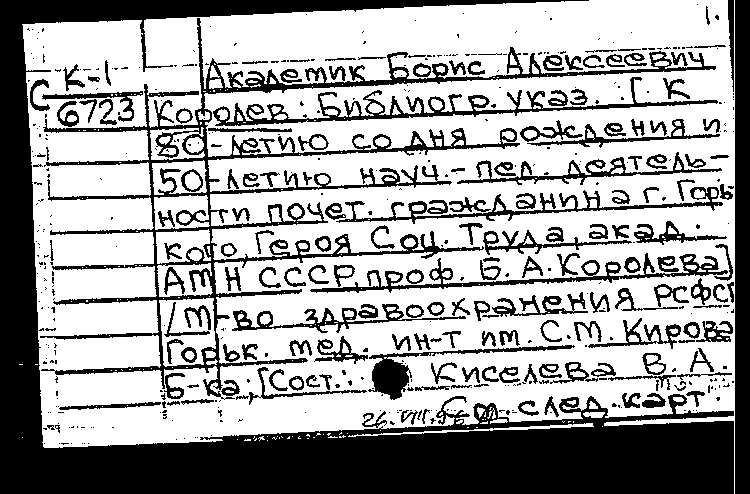 1.
К-1 Академик Борис Алексеевич
С 6723 Королев: Библиогр. указ. [К
80-летию со дня рождения и
50-летию науч.-пед. деятель-
ности почет. гражданина г. Горь-
кого, Героя Соц. Труда, акад.
АМН СССР, проф. Б. А. Королева]
/М-во здравоохранения РСФСР
Горьк. мед. ин-т им. С.М. Кирова
Б-ка; [Сост.: Киселева В. А.
См. след. карт.
26.VIII.96